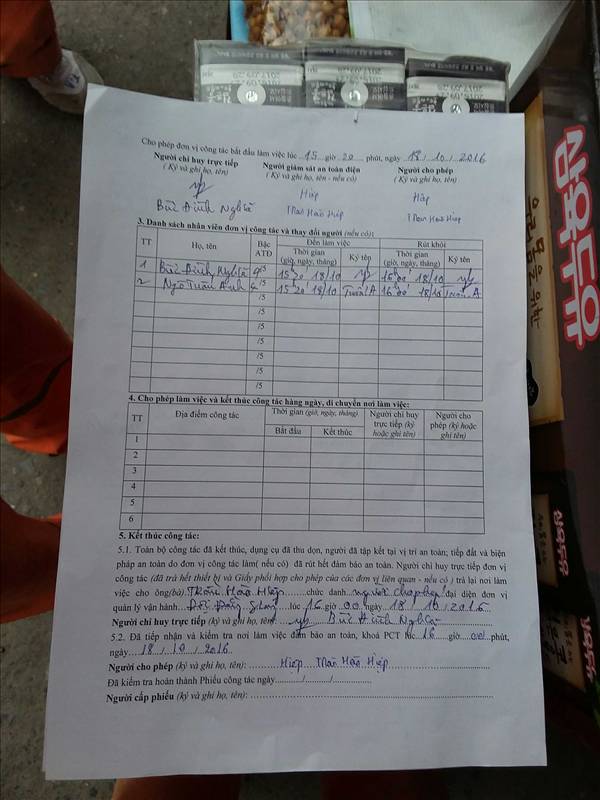 Cho phép đơn vị công tác bắt đầu làm việc lúc 15 giờ 20 phút, ngày 18 / 10 / 2016
Người chỉ huy trực tiếp
( Ký và ghi họ, tên)
Bùi Đình Nghĩa
Người giám sát an toàn điện
( Ký và ghi họ, tên - nếu có)
Hiệp
Trần Hào Hiệp
Người cho phép
( Ký và ghi họ, tên)
Hiệp
Trần Hào Hiệp
3. Danh sách nhân viên đơn vị công tác và thay đổi người (nếu có):
TT Họ, tên Bậc ATĐ Đến làm việc Rút khỏi
Thời gian (giờ, ngày, tháng) Ký tên Thời gian (giờ, ngày, tháng) Ký tên
1 Bùi Đình Nghĩa 4/5 15 20' 18/10 16 00' 18/10
2 Ngô Tuấn Anh 4/5 15 20' 18/10 Tuấn A 16 00' 18/10 Tuấn A
/5
/5
/5
/5
/5
/5
4. Cho phép làm việc và kết thúc công tác hàng ngày, di chuyển nơi làm việc:
TT Địa điểm công tác Thời gian (giờ, ngày, tháng) Người chỉ huy trực tiếp (ký hoặc ghi tên) Người cho phép (ký hoặc ghi tên)
Bắt đầu Kết thúc
1
2
3
4
5
6
5. Kết thúc công tác:
5.1. Toàn bộ công tác đã kết thúc, dụng cụ đã thu dọn, người đã tập kết tại vị trí an toàn; tiếp đất và biện
pháp an toàn do đơn vị công tác làm( nếu có) đã rút hết đảm bảo an toàn. Người chỉ huy trực tiếp đơn vị
công tác (đã trả hết thiết bị và Giấy phối hợp cho phép của các đơn vị liên quan - nếu có ) trả lại nơi làm
việc cho ông(bà) Trần Hào Hiệp chức danh người cho phép đại diện đơn vị
quản lý vận hành lúc 16 giờ 00 ngày 18 / 10 / 2016
Người chỉ huy trực tiếp (ký và ghi họ, tên): Bùi Đình Nghĩa
5.2. Đã tiếp nhận và kiểm tra nơi làm việc đảm bảo an toàn, khoá PCT lúc 16 giờ 00 phút,
ngày 18 / 10 / 2016
Người cho phép (ký và ghi họ, tên): Hiệp Trần Hào Hiệp
Đã kiểm tra hoàn thành Phiếu công tác ngày / /
Người cấp phiếu (ký và ghi họ, tên):
삼육두유